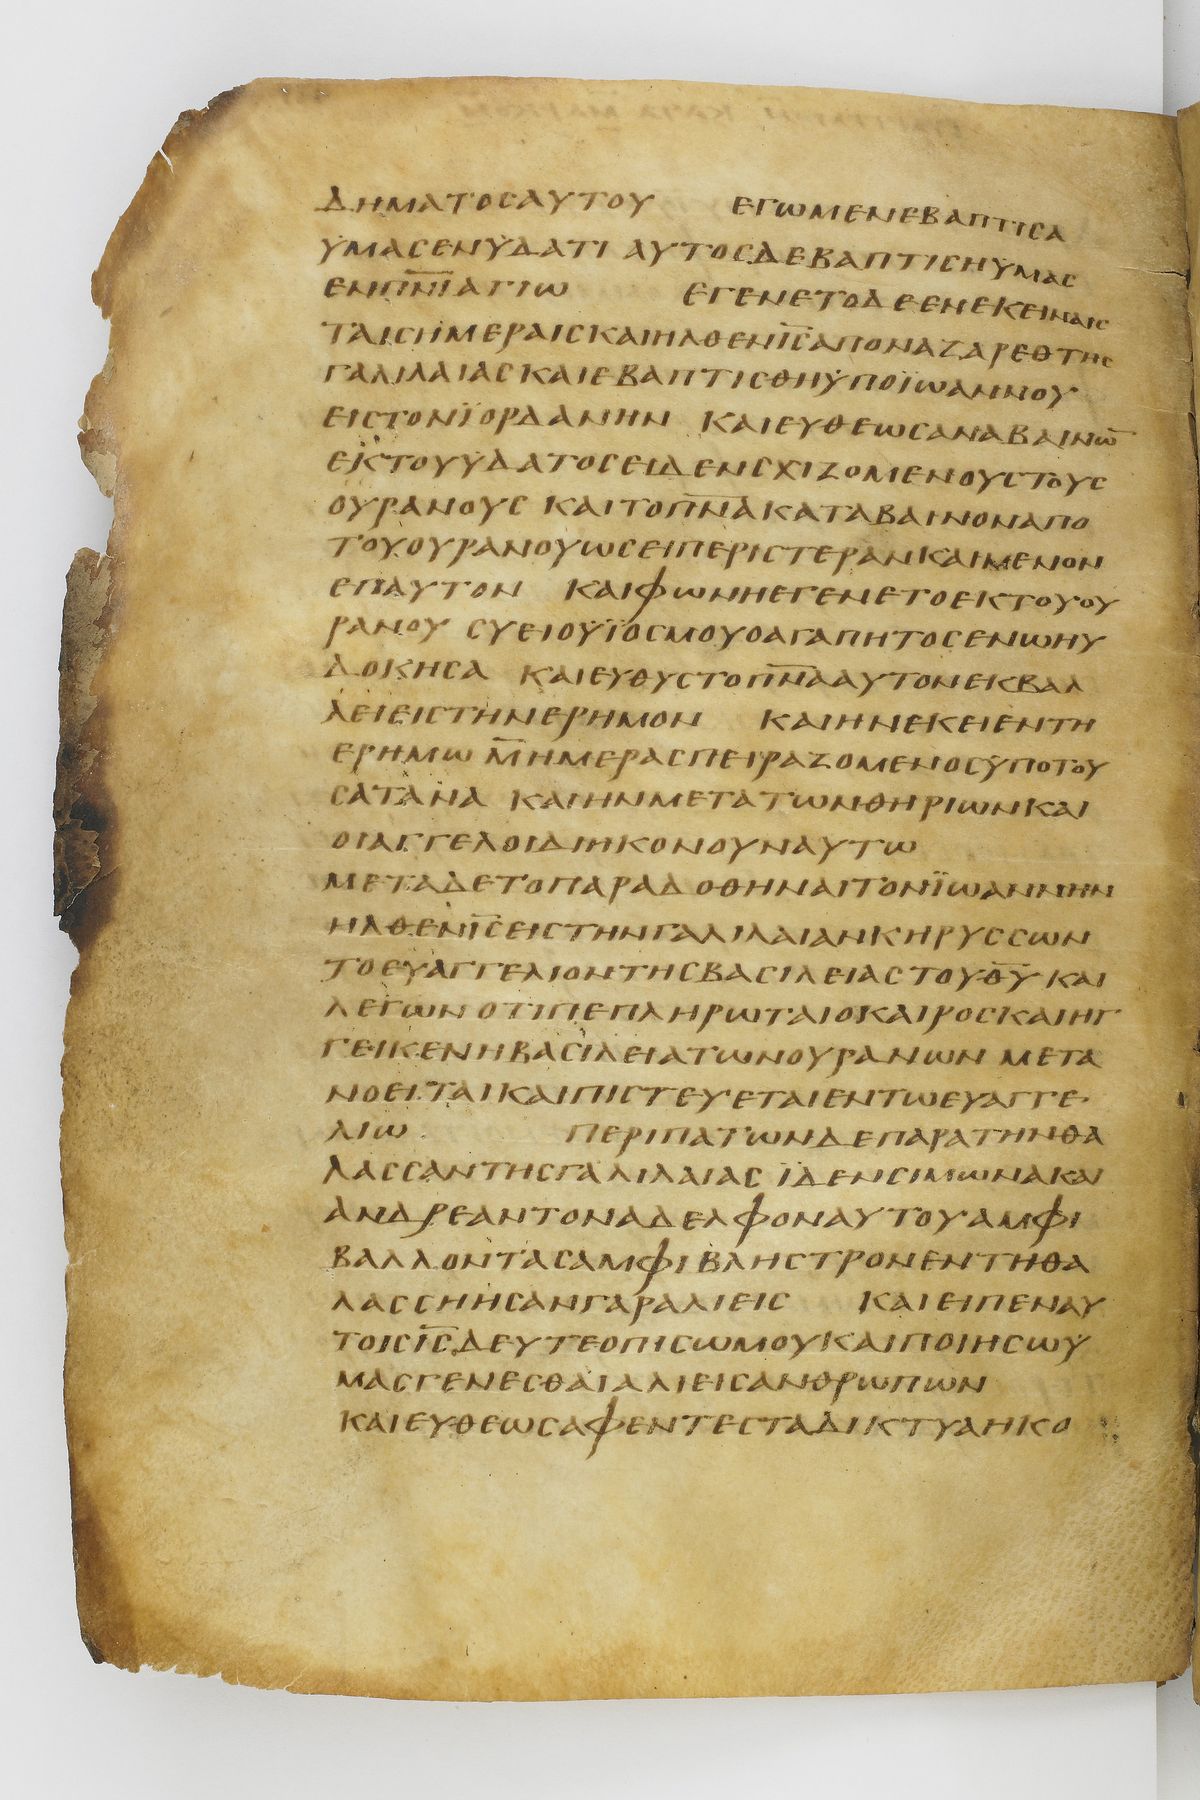 ΔΗΜΑΤΟСΑΥΤΟΥ ΕΓΩΜΕΝΕΒΑΠΤΙСΑ
ΫΜΑСΕΝΫΔΑΤΙ ΑΥΤΟСΔΕΒΑΠΤΙСΗΫΜΑС
ΕΝΠ̅Ν̅Ι̅ΑΓΙΩ ΕΓΕΝΕΤΟΔΕΕΝΕΚΕΙΝΑΙС
ΤΑΙСΗΜΕΡΑΙСΚΑΙΗΛΘΕΝΙ̅С̅ΑΠΟΝΑΖΑΡΕΘΤΗС
ΓΑΛΙΛΑΙΑСΚΑΙΕΒΑΠΤΙСΘΗΫΠΟΪΩΑΝΝΟΥ
ΕΙСΤΟΝΪΟΡΔΑΝΗΝ ΚΑΙΕΥΘΕΩСΑΝΑΒΑΙΝΩ̅
ΕΚΤΟΥΫΔΑΤΟСΕΙΔΕΝСΧΙΖΟΜΕΝΟΥСΤΟΥС
ΟΥΡΑΝΟΥС ΚΑΙΤΟΠ̅Ν̅Α̅ΚΑΤΑΒΑΙΝΟΝΑΠΟ
ΤΟΥΟΥΡΑΝΟΥΩСΕΙΠΕΡΙСΤΕΡΑΝΚΑΙΜΕΝΟΝ
ΕΠΑΥΤΟΝ ΚΑΙΦΩΝΗΕΓΕΝΕΤΟΕΚΤΟΥΟΥ
ΡΑΝΟΥ СΥΕΙΟΫΪΟСΜΟΥΟΑΓΑΠΗΤΟСΕΝΩΗΥ
ΔΟΚΗСΑ ΚΑΙΕΥΘΥСΤΟΠ̅Ν̅Α̅ΑΥΤΟΝΕΚΒΑΛ
ΛΕΙΕΙСΤΗΝΕΡΗΜΟΝ ΚΑΙΗΝΕΚΕΙΕΝΤΗ
ΕΡΗΜΩ Μ̅ΗΜΕΡΑСΠΕΙΡΑΖΟΜΕΝΟСΫΠΟΤΟΥ
СΑΤΑΝΑ ΚΑΙΗΝΜΕΤΑΤΩΝΘΗΡΙΩΝΚΑΙ
ΟΙΑΓΓΕΛΟΙΔΙΗΚΟΝΟΥΝΑΥΤΩ
ΜΕΤΑΔΕΤΟΠΑΡΑΔΟΘΗΝΑΙΤΟΝΪΩΑΝΝΗΝ
ΗΛΘΕΝΙ̅С̅ΕΙСΤΗΝΓΑΛΙΛΑΙΑΝΚΗΡΥССΩΝ
ΤΟΕΥΑΓΓΕΛΙΟΝΤΗСΒΑСΙΛΕΙΑСΤΟΥΘ̅Υ̅ ΚΑΙ
ΛΕΓΩΝΟΤΙΠΕΠΛΗΡΩΤΑΙΟΚΑΙΡΟСΚΑΙΗΓ
ΓΕΙΚΕΝΗΒΑСΙΛΕΙΑΤΩΝΟΥΡΑΝΩΝ ΜΕΤΑ
ΝΟΕΙΤΑΙΚΑΙΠΙСΤΕΥΕΤΑΙΕΝΤΩΕΥΑΓΓΕ
ΛΙΩ ΠΕΡΙΠΑΤΩΝΔΕΠΑΡΑΤΗΝΘΑ
ΛΑССΑΝΤΗСΓΑΛΙΛΑΙΑС ΪΔΕΝСΙΜΩΝΑΚΑΙ
ΑΝΔΡΕΑΝΤΟΝΑΔΕΛΦΟΝΑΥΤΟΥΑΜΦΙ
ΒΑΛΛΟΝΤΑСΑΜΦΙΒΛΗСΤΡΟΝΕΝΤΗΘΑ
ΛΑССΗΗСΑΝΓΑΡΑΛΙΕΙС ΚΑΙΕΙΠΕΝΑΥ
ΤΟΙСΙ̅С̅ΔΕΥΤΕΟΠΙСΩΜΟΥΚΑΙΠΟΙΗСΩΥ
ΜΑСΓΕΝΕСΘΑΙΑΛΙΕΙСΑΝΘΡΩΠΩΝ
ΚΑΙΕΥΘΕΩСΑΦΕΝΤΕСΤΑΔΙΚΤΥΑΗΚΟ